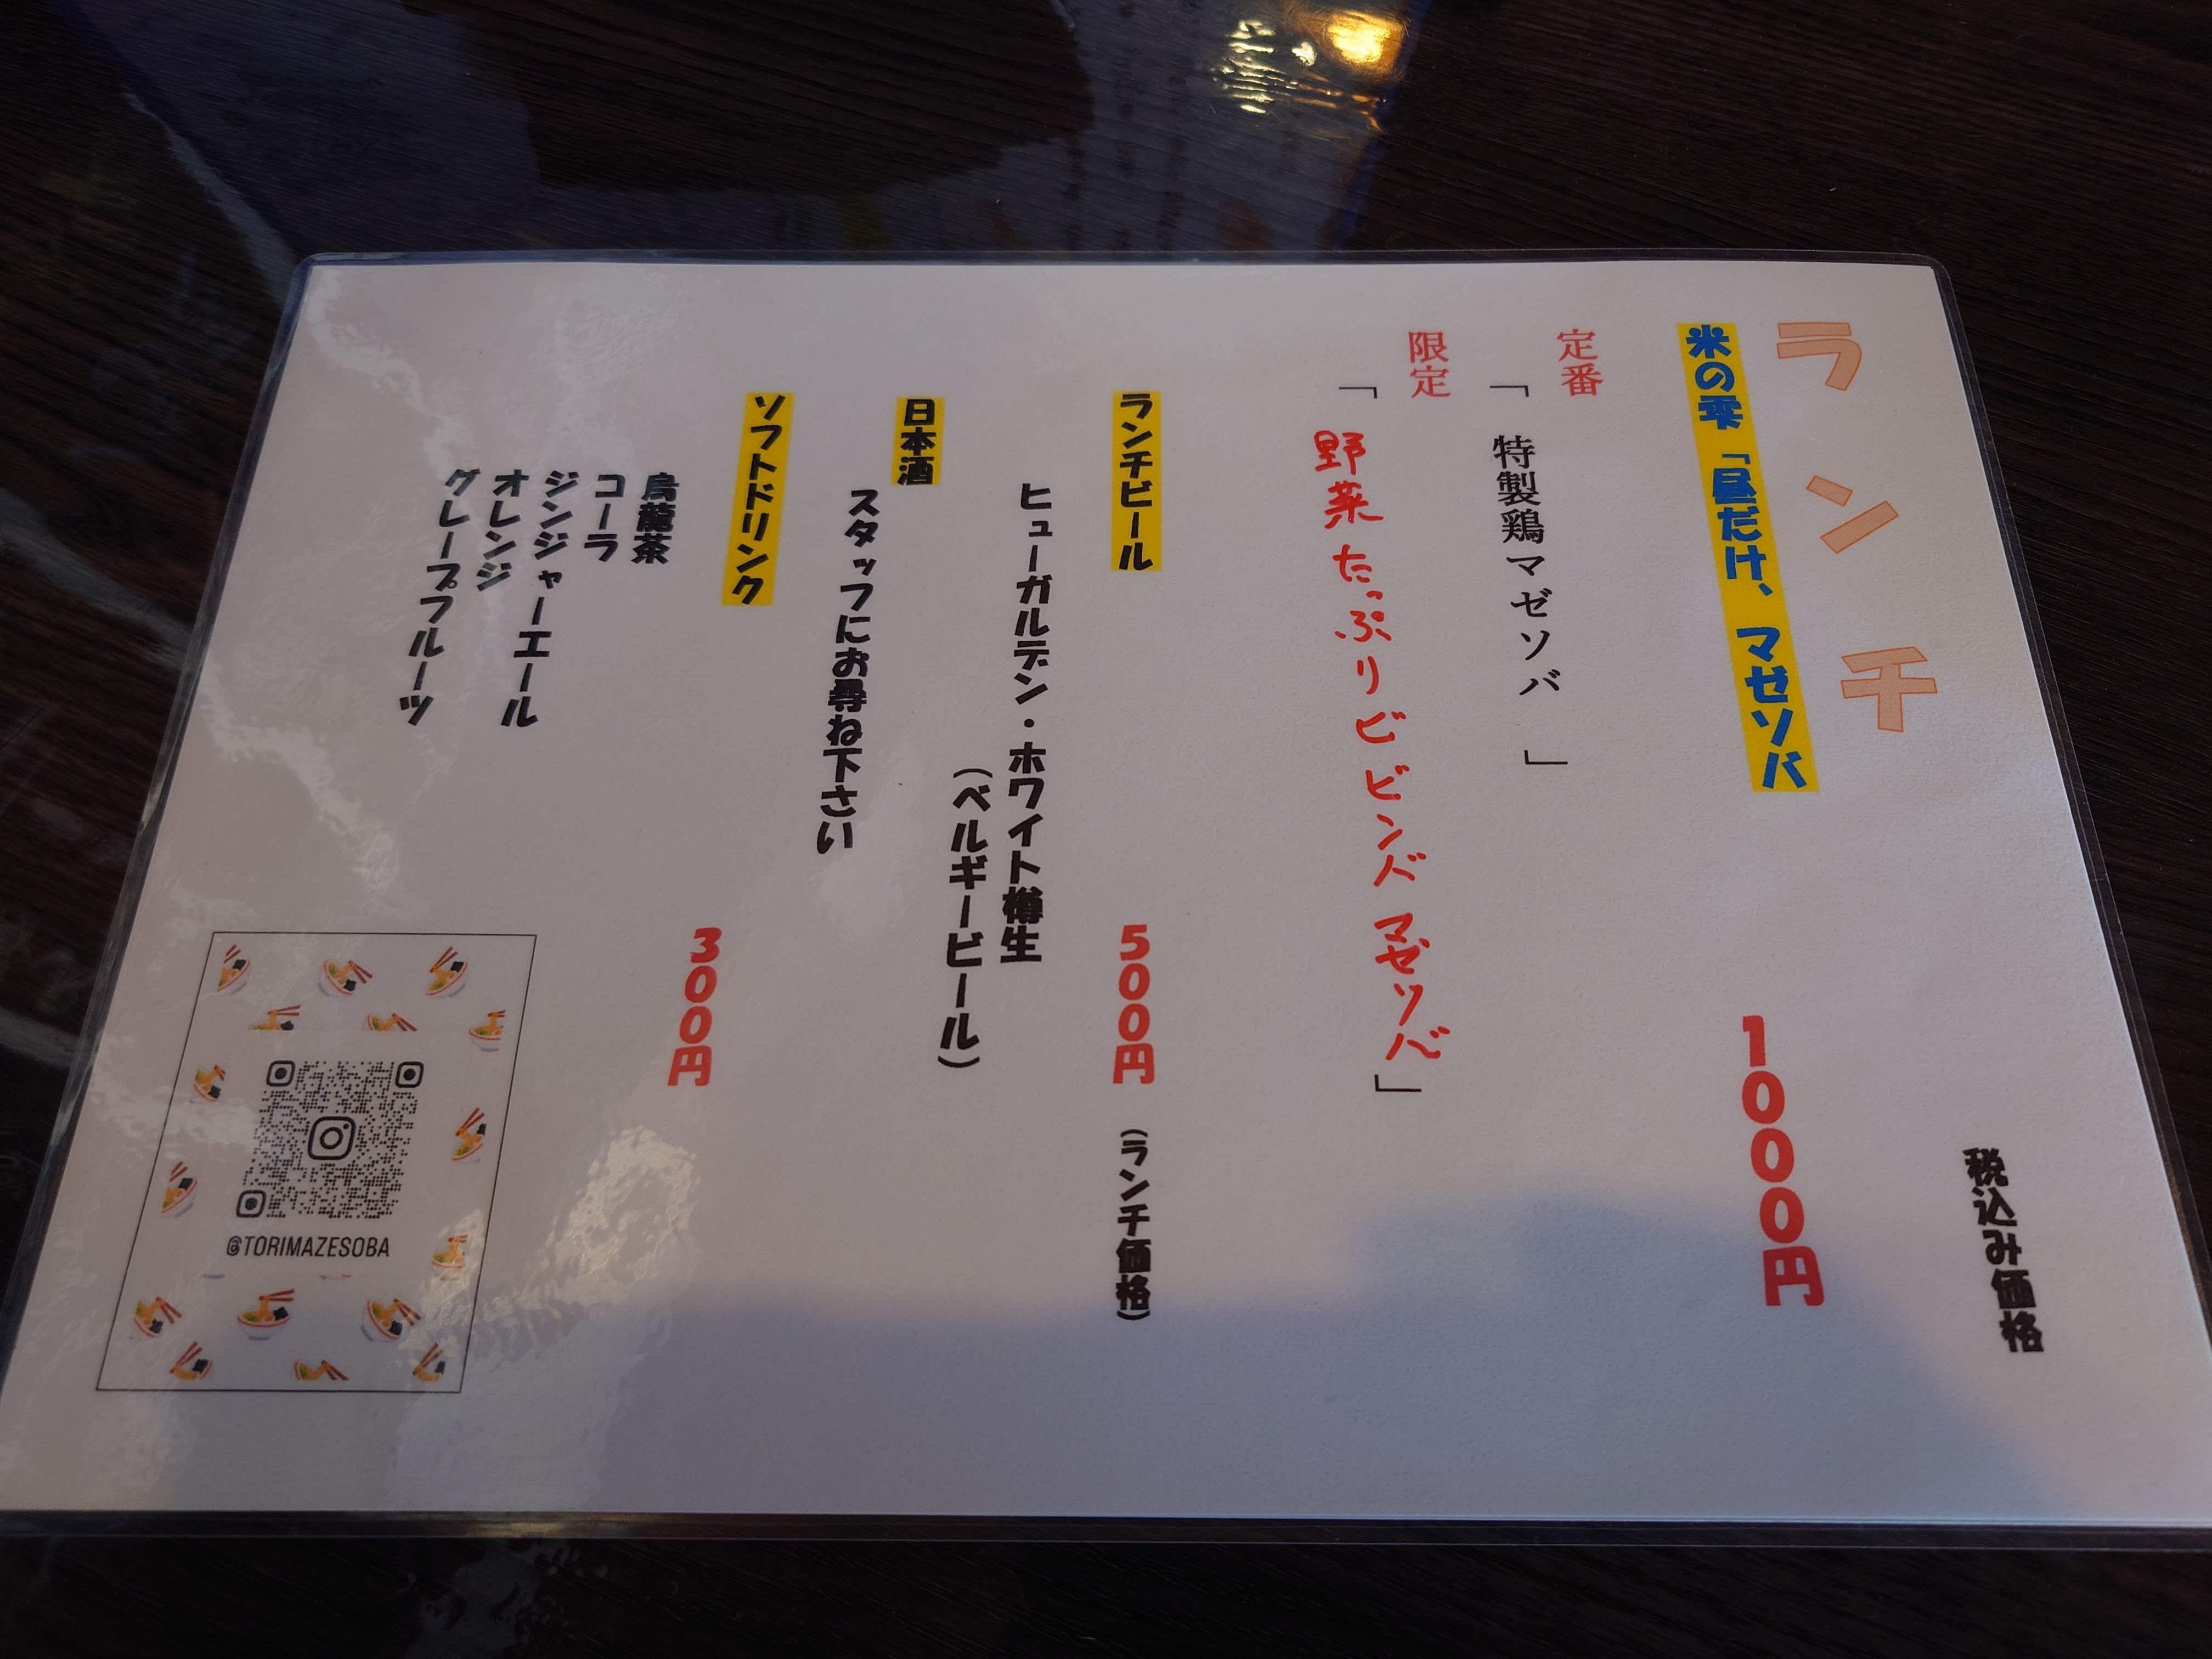 ランチ
税込み価格
米の雫「昼だけ、マゼソバ
1000円
定番
「特製鶏マゼソバ」
限定
「野菜たっぷりビビンバマゼソバ」
ランチビール
500円(ランチ価格)
ヒューガルデン・ホワイト樽生
(ベルギービール)
日本酒
スタッフにお尋ね下さい
ソフトドリンク
300円
烏龍茶
コーラ
ジンジャーエール
オレンジ
グレープフルーツ
@TORIMAZESOBA